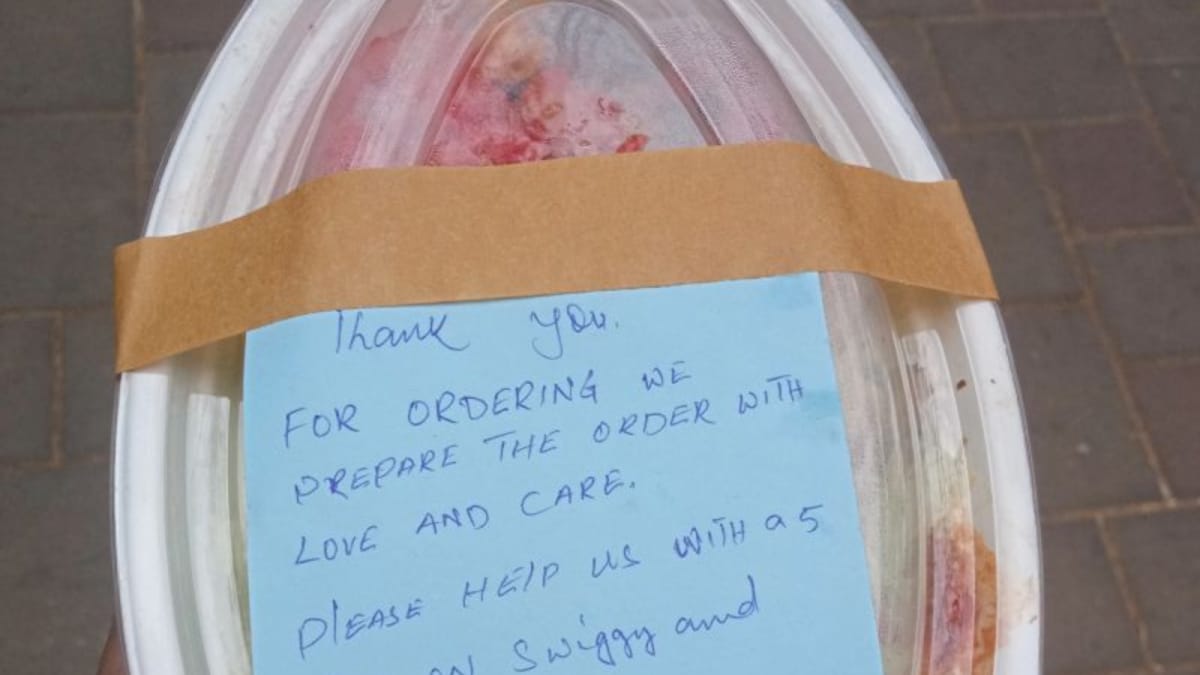 Thank you.
FOR ORDERING WE
PREPARE THE ORDER WITH
LOVE AND CARE.
PlEASE HElP US WITH a 5
ON Swiggy and